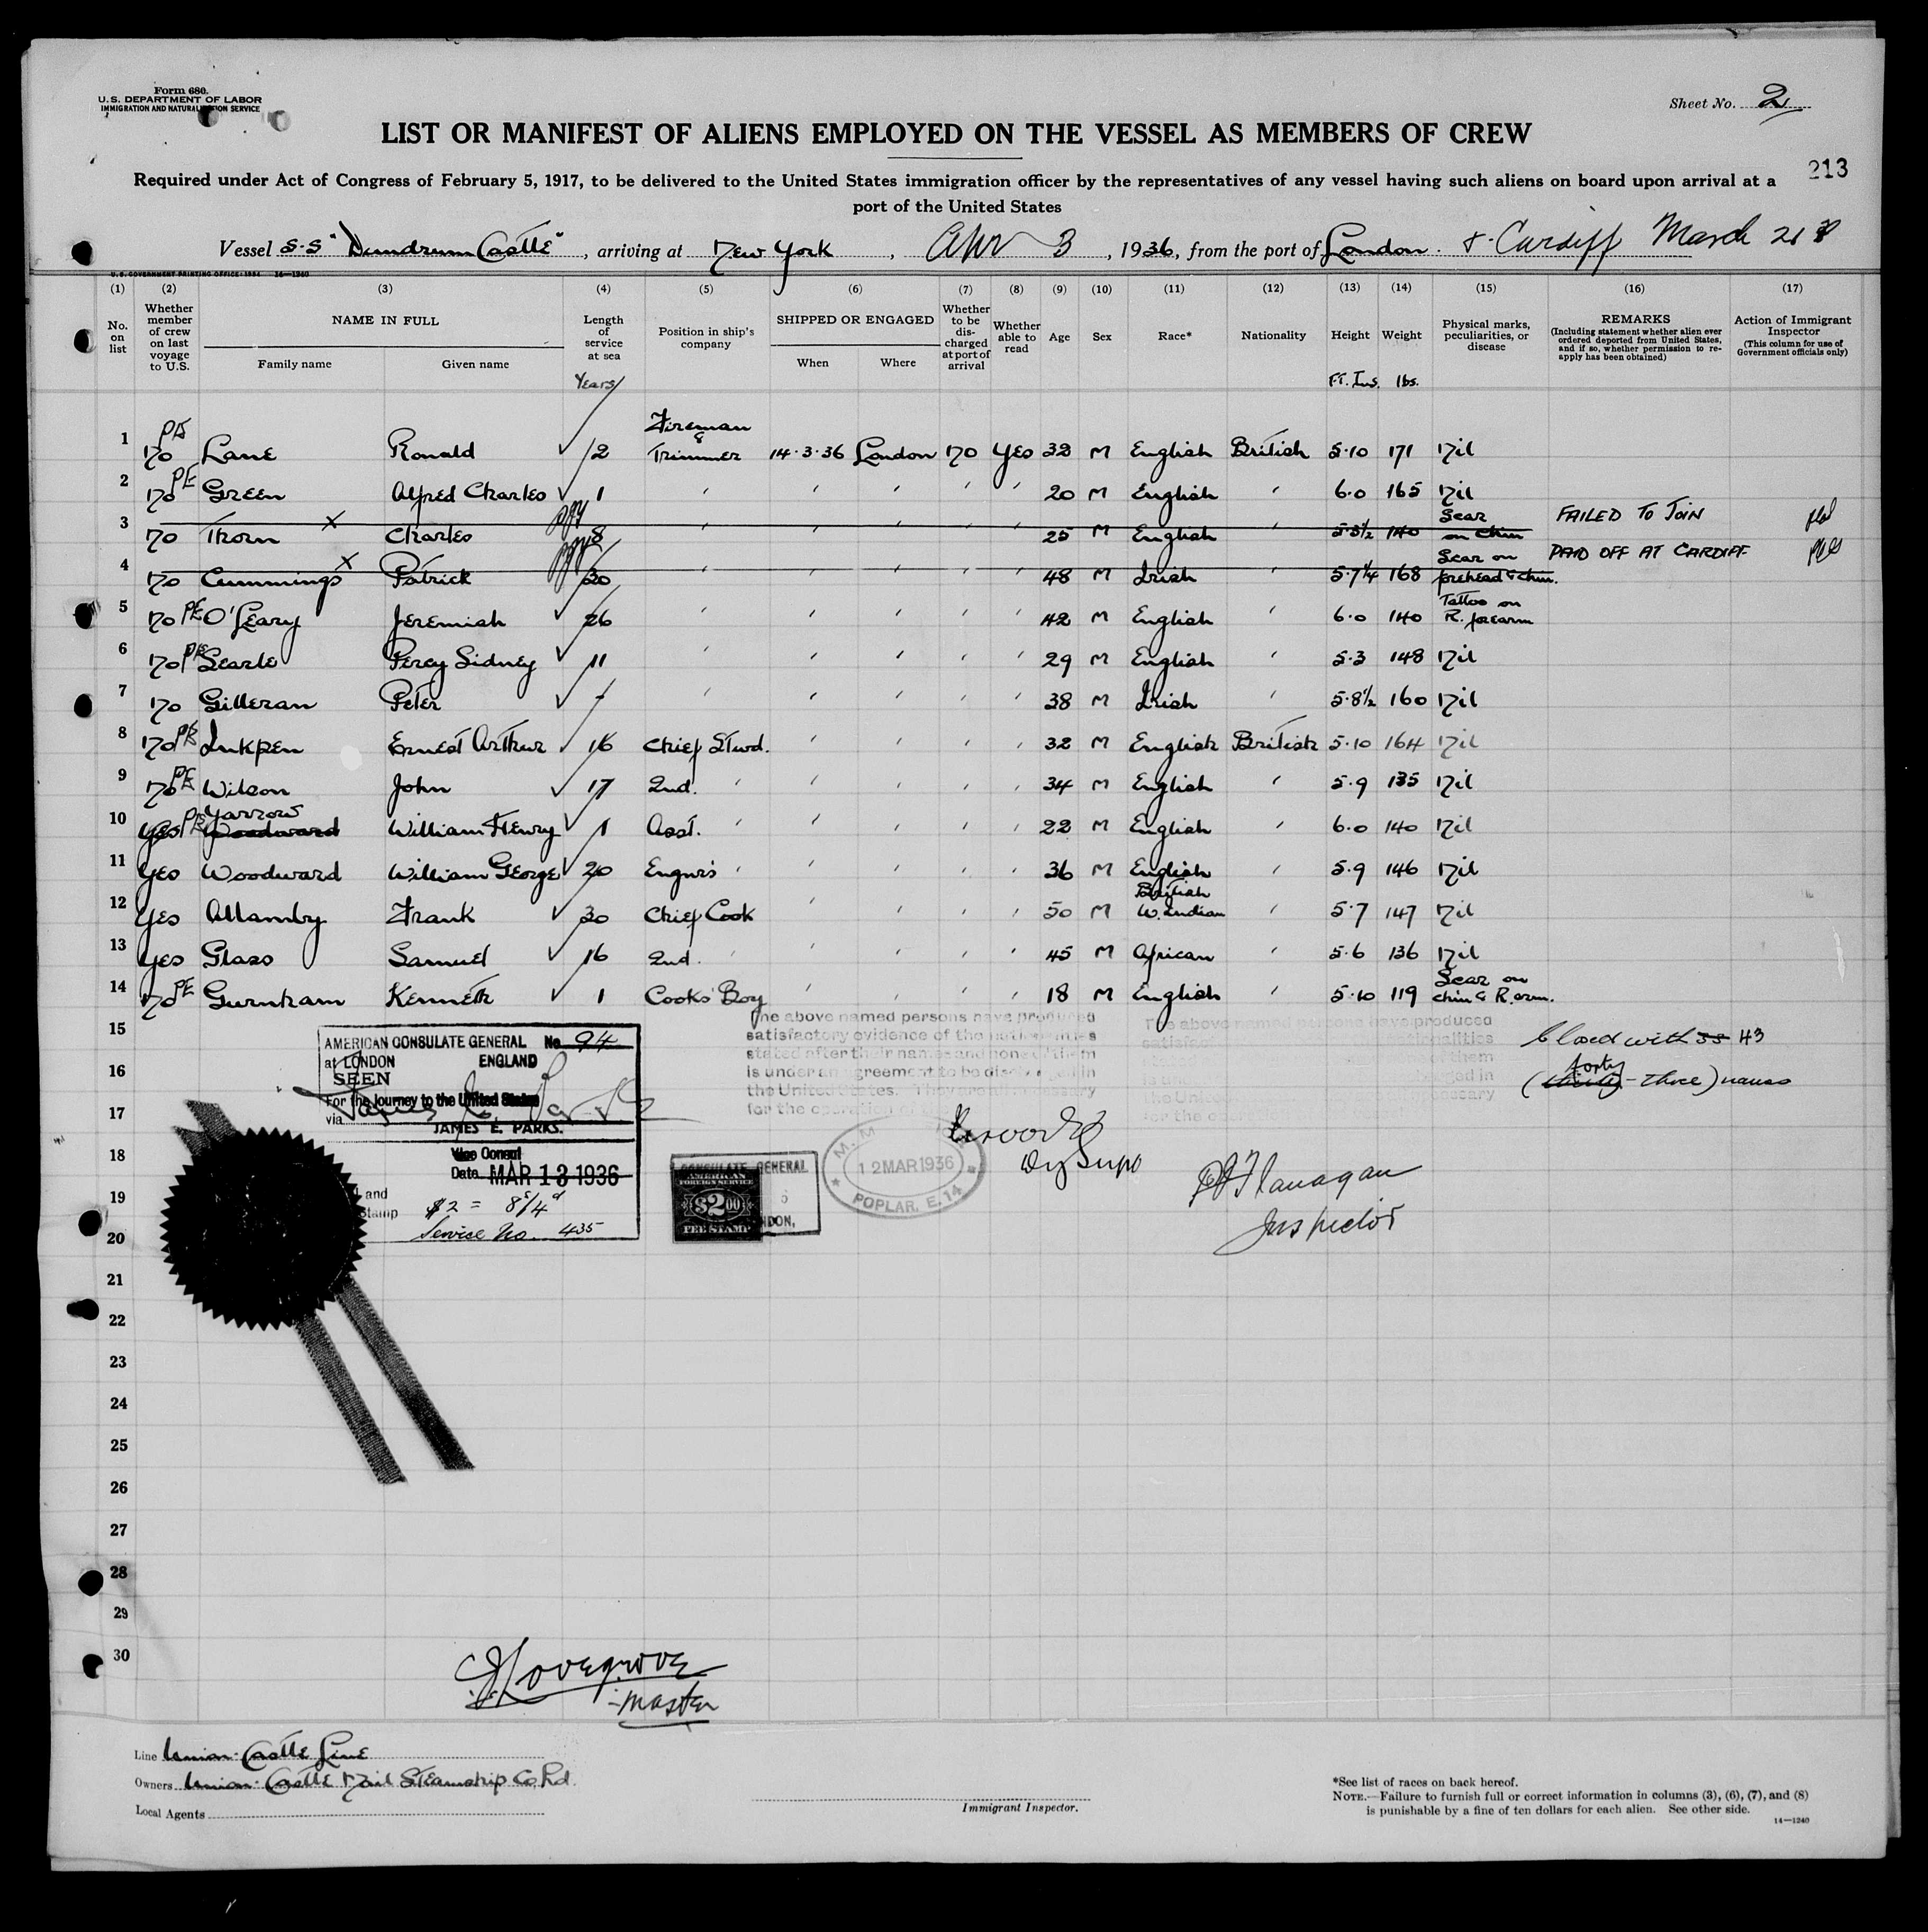 Form 680.
U.S. DEPARTMENT OF LABOR
IMMIGRATION AND NATURALIZATION SERVICE
Sheet No. 2
LIST OR MANIFEST OF ALIENS EMPLOYED ON THE VESSEL AS MEMBERS OF CREW
213
Required under Act of Congress of February 5, 1917, to be delivered to the United States immigration officer by the representatives of any vessel having such aliens on board upon arrival at a
port of the United States
Vessel S.S "Dundrum Castle", arriving at New York, Apr 3, 1936, from the port of London. & Cardiff March 21
U.S. GOVERNMENT PRINTING OFFICE: 1934 14—1240
(1) (2) (3) (4) (5) (6) (7) (8) (9) (10) (11) (12) (13) (14) (15) (16) (17)
No. on list
Whether member of crew on last voyage to U.S.
NAME IN FULL
Family name Given name
Length of service at sea
Position in ship's company
SHIPPED OR ENGAGED
When Where
Whether to be discharged at port of arrival
Whether able to read
Age
Sex
Race*
Nationality
Height
Weight
Physical marks, peculiarities, or disease
REMARKS
(Including statement whether alien ever ordered deported from United States, and if so, whether permission to reapply has been obtained)
Action of Immigrant Inspector
(This column for use of Government officials only)
Years Ft. Ins. lbs.
1 No Lane Ronald 12 Fireman & Trimmer 14.3.36 London No Yes 32 M English British 5.10 171 Nil
2 No PE Green Alfred Charles 1 " " " " " 20 M English " 6.0 165 Nil
3 No Thorn X Charles 8 " " " " " 25 M English " 5.5½ 140 Scar on chin FAILED TO JOIN
4 No Cummings X Patrick 30 " " " " " 48 M Irish " 5.7¼ 168 Scar on forehead & chin. PAID OFF AT CARDIFF
5 No PE O'Leary Jeremiah 26 " " " " " 42 M English " 6.0 140 Tattoo on R. forearm
6 No PE Searle Percy Sidney 11 " " " " " 29 M English " 5.3 148 Nil
7 No Gilleran Peter " " " " " 38 M Irish " 5.8½ 160 Nil
8 No Inkpen Ernest Arthur 16 Chief Stwd. " " " " 32 M English British 5.10 164 Nil
9 No PE Wilson John 17 2nd. " " " " " 34 M English " 5.9 135 Nil
10 Yes Woodward Yarrow William Henry 1 Asst. " " " " " 22 M English " 6.0 140 Nil
11 Yes Woodward William George 20 Engnrs " " " " " 36 M English " 5.9 146 Nil
12 Yes Allamby Frank 30 Chief Cook " " " " 50 M British W. Indian " 5.7 147 Nil
13 Yes Glaso Samuel 16 2nd. " " " " " 45 M African " 5.6 136 Nil
14 No PE Gurnham Kenneth 1 Cooks Boy " " " " 18 M English " 5.10 119 Scar on chin & R. arm.
15
16
17
18
19
20
21
22
23
24
25
26
27
28
29
30
AMERICAN CONSULATE GENERAL No. 94
at LONDON ENGLAND
SEEN
For the journey to the United States
via
JAMES E. PARKS.
Vice Consul
Date MAR 13 1936
and
Stamp
$2 = 8s/4d
Service No. 435
The above named persons have produced
satisfactory evidence of the nationalities
stated after their names and none of them
is under an agreement to be discharged in
the United States. They are all necessary
for the operation of the
The above named persons have produced
CONSULATE GENERAL
AMERICAN
FOREIGN SERVICE
$2.00
FEE STAMP
M. M
12 MAR 1936
POPLAR. E.14
Dy Supt
Closed with 33 43
(thirty forty - three) names
Flanagan
Inspector
Lovegrove
- Master
Line Union-Castle Line
Owners Union-Castle Mail Steamship Co. Ltd.
Local Agents
Immigrant Inspector.
*See list of races on back hereof.
NOTE.—Failure to furnish full or correct information in columns (3), (6), (7), and (8)
is punishable by a fine of ten dollars for each alien. See other side.
14—1240